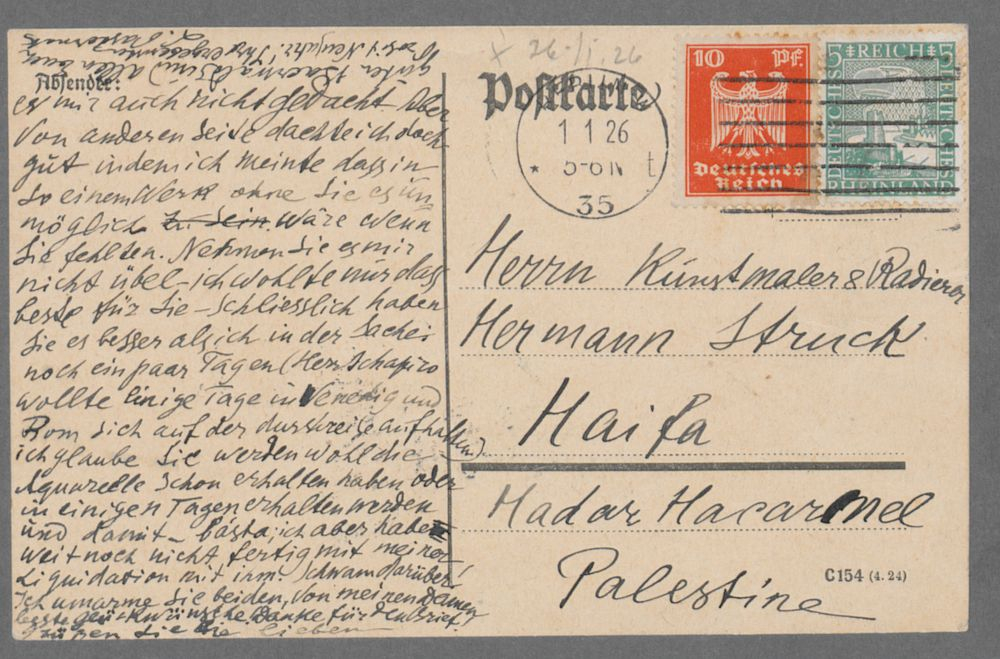 Absender:
Postkarte
× 26./I. 26
BERLIN W
1 1 26
* 5-6 N t
35
10 Pf.
Deutsches
Reich
5 REICH 5
DEUTSCHES
DEUTSCHES
RHEINLAND
es mir auch nicht gedacht Aber
von anderen Seite dachte ich doch
gut indem ich meinte dass in
so einem Werk ohne Sie es un
möglich zu sein wäre wenn
Sie fehlten. Nehmen Sie es mir
nicht übel – ich wohlte nur dass
beste für Sie – schliesslich haben
Sie es besser als ich in der Sache
noch ein paar Tagen (Herr Schapiro
wollte einige Tage in Venedig und
Rom sich auf der durchreise aufhalten)
ich glaube Sie werden wohl die
Aquarelle schon erhalten haben oder
in einigen Tagen erhalten werden
und damit – basta, ich aber habe
weit noch nicht fertig mit meiner
Liquidation mit ihm. Schwam darüber!
Ich umarme Sie beiden, von meinen Damen
beste Glückwünsche Danke für den Brief.
Grüßen Sie die lieben
Herrn Kunstmaler & Radierer
Hermann Struck
Haifa
Hadar Hacarmel
Palestine
C154 (4. 24)